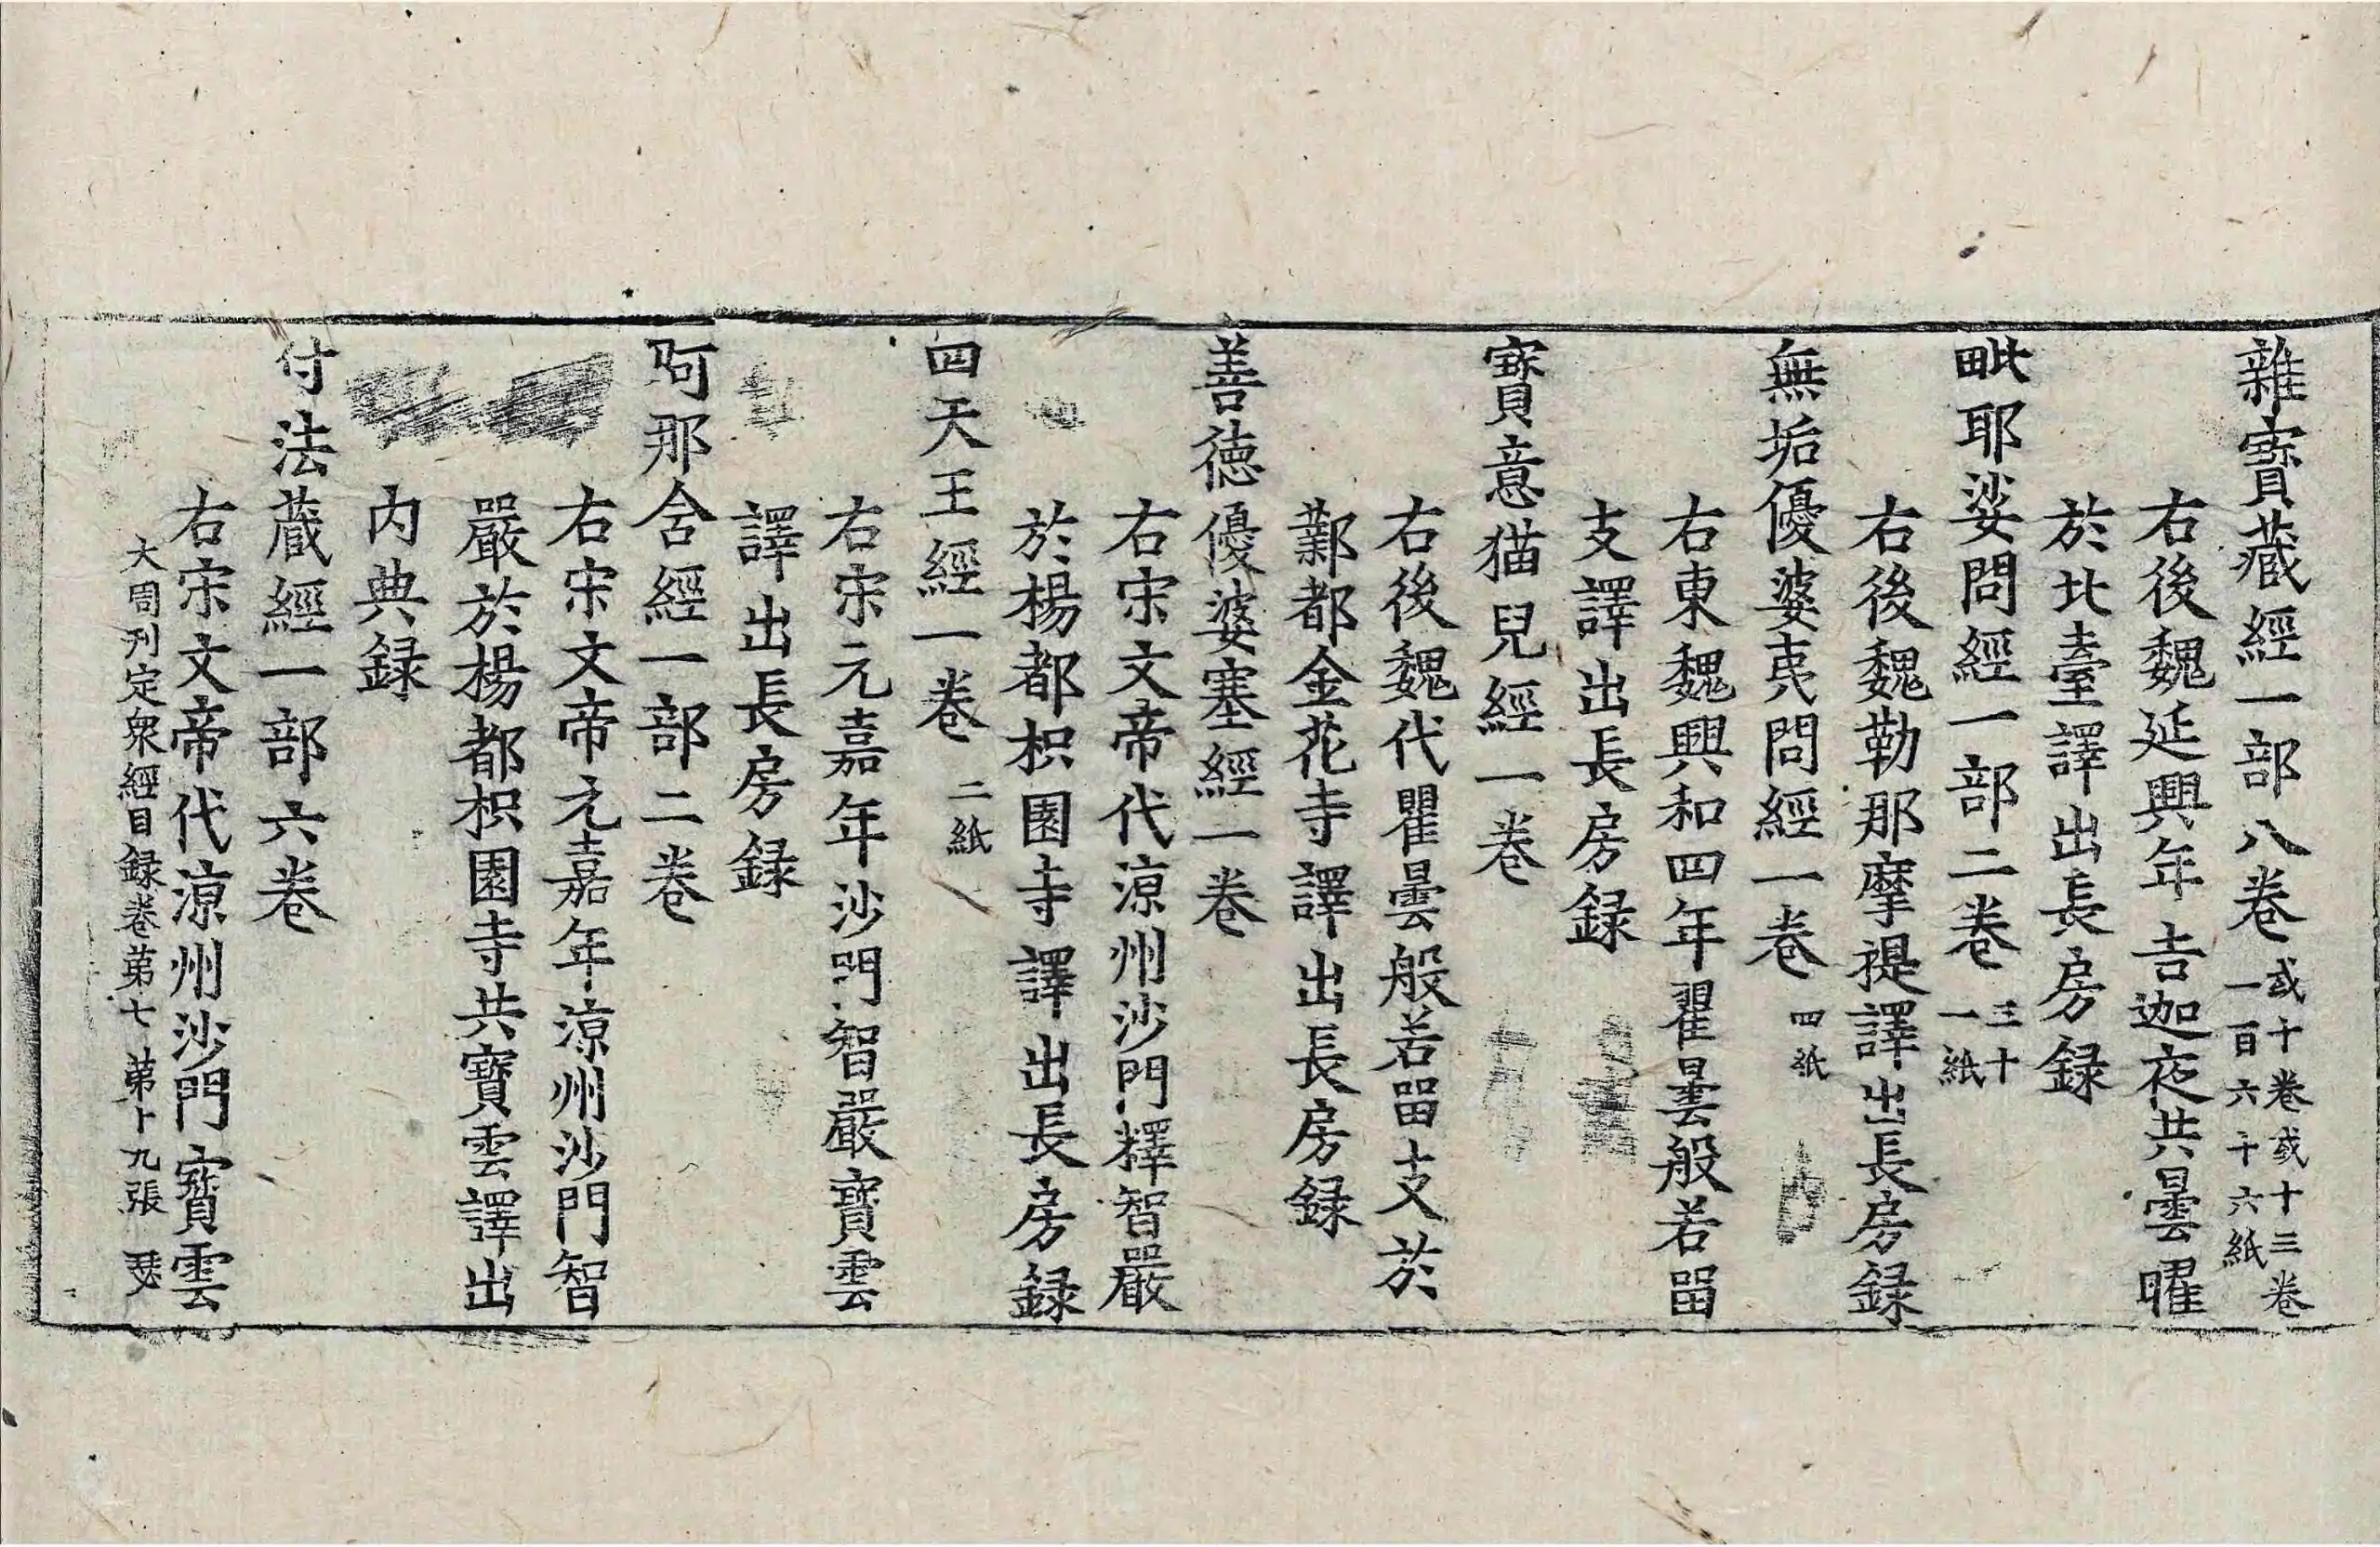 雜寶藏經一部八卷 或十卷或十三卷一百六十六紙
右後魏延興年吉迦夜共曇曜
於北臺譯出長房録
毗耶娑問經一部二卷 三十一紙
右後魏勒那摩禔譯出長房録
無垢優婆夷問經一卷 四紙
右東魏興和四年瞿曇般若留
支譯出長房録
寶意猫兒經一卷
右後魏代瞿曇般若留支於
鄴都金花寺譯出長房録
善德優婆塞經一卷
右宋文帝代涼州沙門釋智嚴
於楊都枳園寺譯出長房録
四天王經一卷 二紙
右宋元嘉年沙門智嚴寶雲
譯出長房録
阿那含經一部二卷
右宋文帝元嘉年涼州沙門智
嚴於楊都枳園寺共寶雲譯出
内典録
付法藏經一部六卷
右宋文帝代涼州沙門寶雲
大周刊定衆經目録卷第七 第十九張 瑟